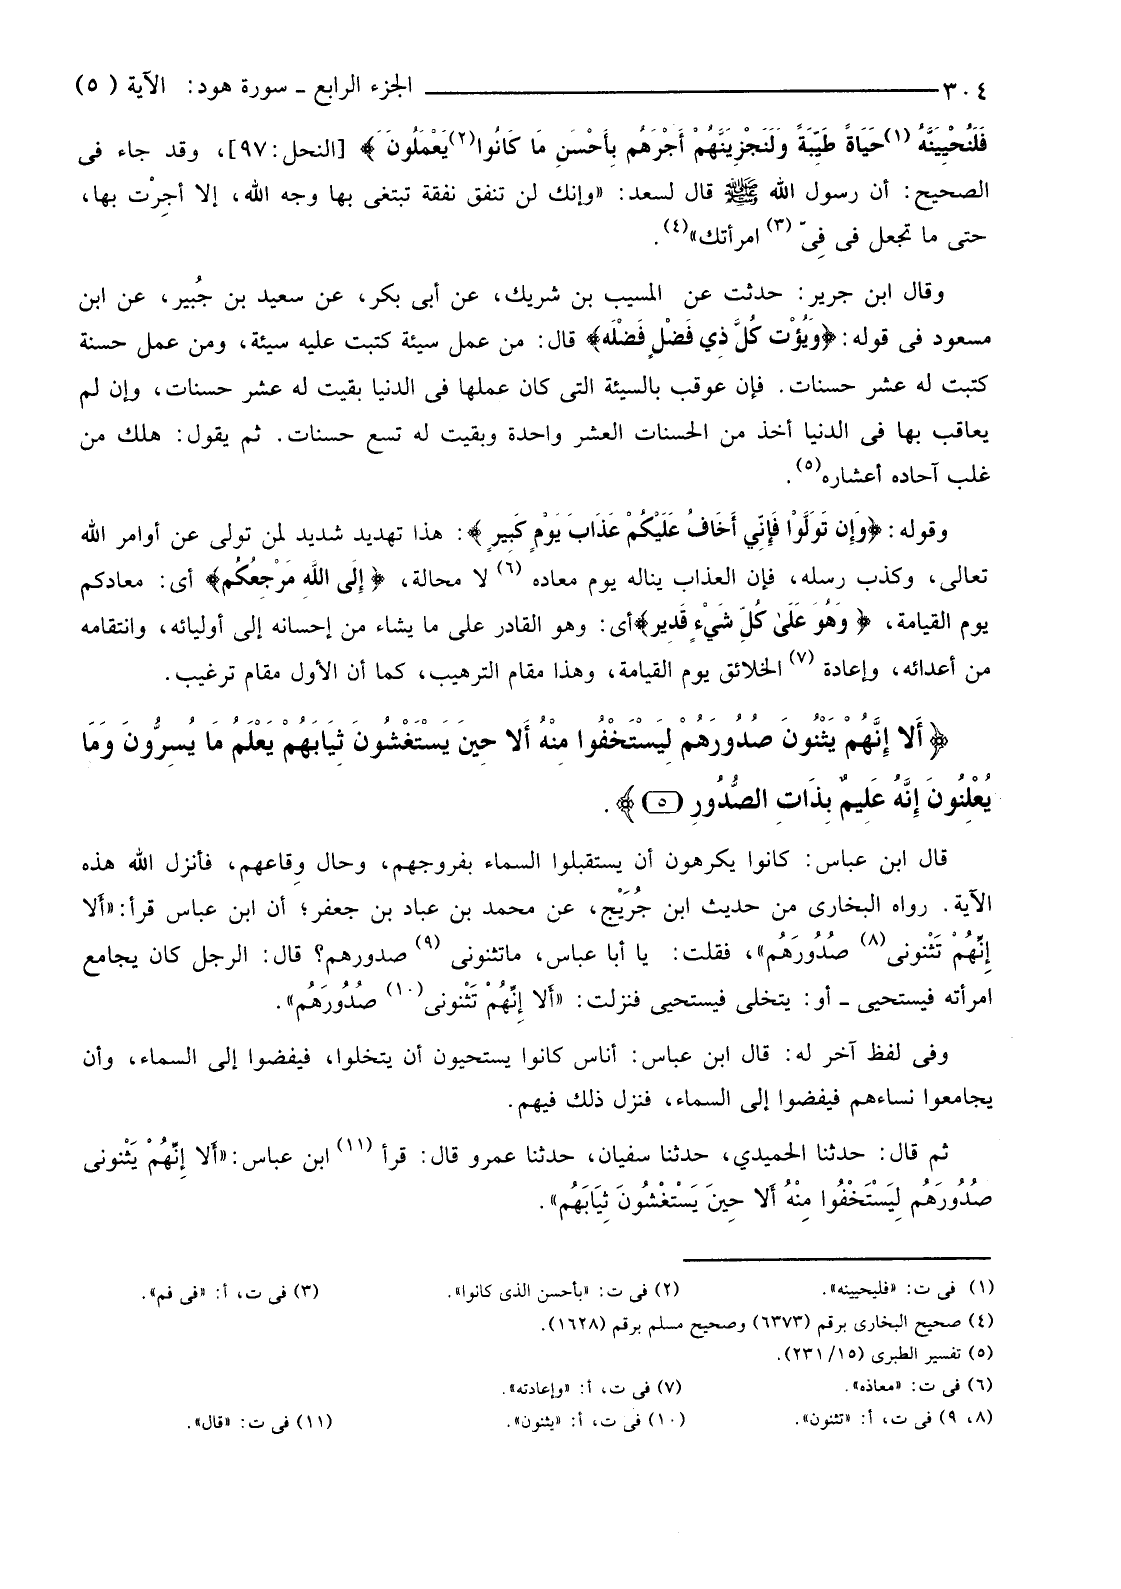 ٣٠٤ ـــــــ الجزء الرابع ـ سورة هود: الآية ( ٥)
فَلَنُحْيِيَنَّهُ (١) حَيَاةً طَيِّبَةً وَلَنَجْزِيَنَّهُمْ أَجْرَهُم بِأَحْسَنِ مَا كَانُوا (٢) يَعْمَلُونَ ﴾ [النحل: ٩٧]، وقد جاء فى
الصحيح: أن رسول الله ﷺ قال لسعد: «وإنك لن تنفق نفقة تبتغى بها وجه الله، إلا أجِرْت بها،
حتى ما تجعل فى فِىّ (٣) امرأتك» (٤).
وقال ابن جرير: حدثت عن المسيب بن شريك، عن أبى بكر، عن سعيد بن جُبير، عن ابن
مسعود فى قوله: ﴿وَيُؤْت كُلَّ ذِي فَضْلٍ فَضْلَه﴾ قال: من عمل سيئة كتبت عليه سيئة، ومن عمل حسنة
كتبت له عشر حسنات. فإن عوقب بالسيئة التى كان عملها فى الدنيا بقيت له عشر حسنات، وإن لم
يعاقب بها فى الدنيا أخذ من الحسنات العشر واحدة وبقيت له تسع حسنات. ثم يقول: هلك من
غلب آحاده أعشاره (٥).
وقوله: ﴿وَإِن تَوَلَّوْا فَإِنِّي أَخَافُ عَلَيْكُمْ عَذَابَ يَوْمٍ كَبِيرٍ ﴾: هذا تهديد شديد لمن تولى عن أوامر الله
تعالى، وكذب رسله، فإن العذاب يناله يوم معاده (٦) لا محالة، ﴿ إِلَى اللَّهِ مَرْجِعُكُم﴾ أى: معادكم
يوم القيامة، ﴿ وَهُوَ عَلَىٰ كُلِّ شَيْءٍ قَدِير﴾ أى: وهو القادر على ما يشاء من إحسانه إلى أوليائه، وانتقامه
من أعدائه، وإعادة (٧) الخلائق يوم القيامة، وهذا مقام الترهيب، كما أن الأول مقام ترغيب.
﴿ أَلا إِنَّهُمْ يَثْنُونَ صُدُورَهُمْ لِيَسْتَخْفُوا مِنْهُ أَلا حِينَ يَسْتَغْشُونَ ثِيَابَهُمْ يَعْلَمُ مَا يُسِرُّونَ وَمَا
يُعْلِنُونَ إِنَّهُ عَلِيمٌ بِذَاتِ الصُّدُورِ (٥) ﴾.
قال ابن عباس: كانوا يكرهون أن يستقبلوا السماء بفروجهم، وحال وِقاعهم، فأنزل الله هذه
الآية. رواه البخارى من حديث ابن جُرَيْج، عن محمد بن عباد بن جعفر؛ أن ابن عباس قرأ: «أَلا
إِنَّهُمْ تَثْنونى (٨) صُدُورَهُم»، فقلت: يا أبا عباس، ماتثنونى (٩) صدورهم؟ قال: الرجل كان يجامع
امرأته فيستحيى ـ أو: يتخلى فيستحيى فنزلت: «أَلا إِنَّهُمْ تَثْنونى (١٠) صُدُورَهُم».
وفى لفظ آخر له: قال ابن عباس: أناس كانوا يستحيون أن يتخلوا، فيفضوا إلى السماء، وأن
يجامعوا نساءهم فيفضوا إلى السماء، فنزل ذلك فيهم.
ثم قال: حدثنا الحميدي، حدثنا سفيان، حدثنا عمرو قال: قرأ (١١) ابن عباس: «أَلا إِنَّهُمْ يَثْنونى
صُدُورَهُم لِيَسْتَخْفُوا مِنْهُ أَلا حِينَ يَسْتَغْشُونَ ثِيَابَهُم».
(١) فى ت: «فليحيينه». (٢) فى ت: «بأحسن الذى كانوا». (٣) فى ت، أ: «فى فم».
(٤) صحيح البخارى برقم (٦٣٧٣) وصحيح مسلم برقم (١٦٢٨).
(٥) تفسير الطبرى (١٥/ ٢٣١).
(٦) فى ت: «معاذه». (٧) فى ت، أ: «وإعادته».
(٨، ٩) فى ت، أ: «تثنون». (١٠) فى ت، أ: «يثنون». (١١) فى ت: «قال».